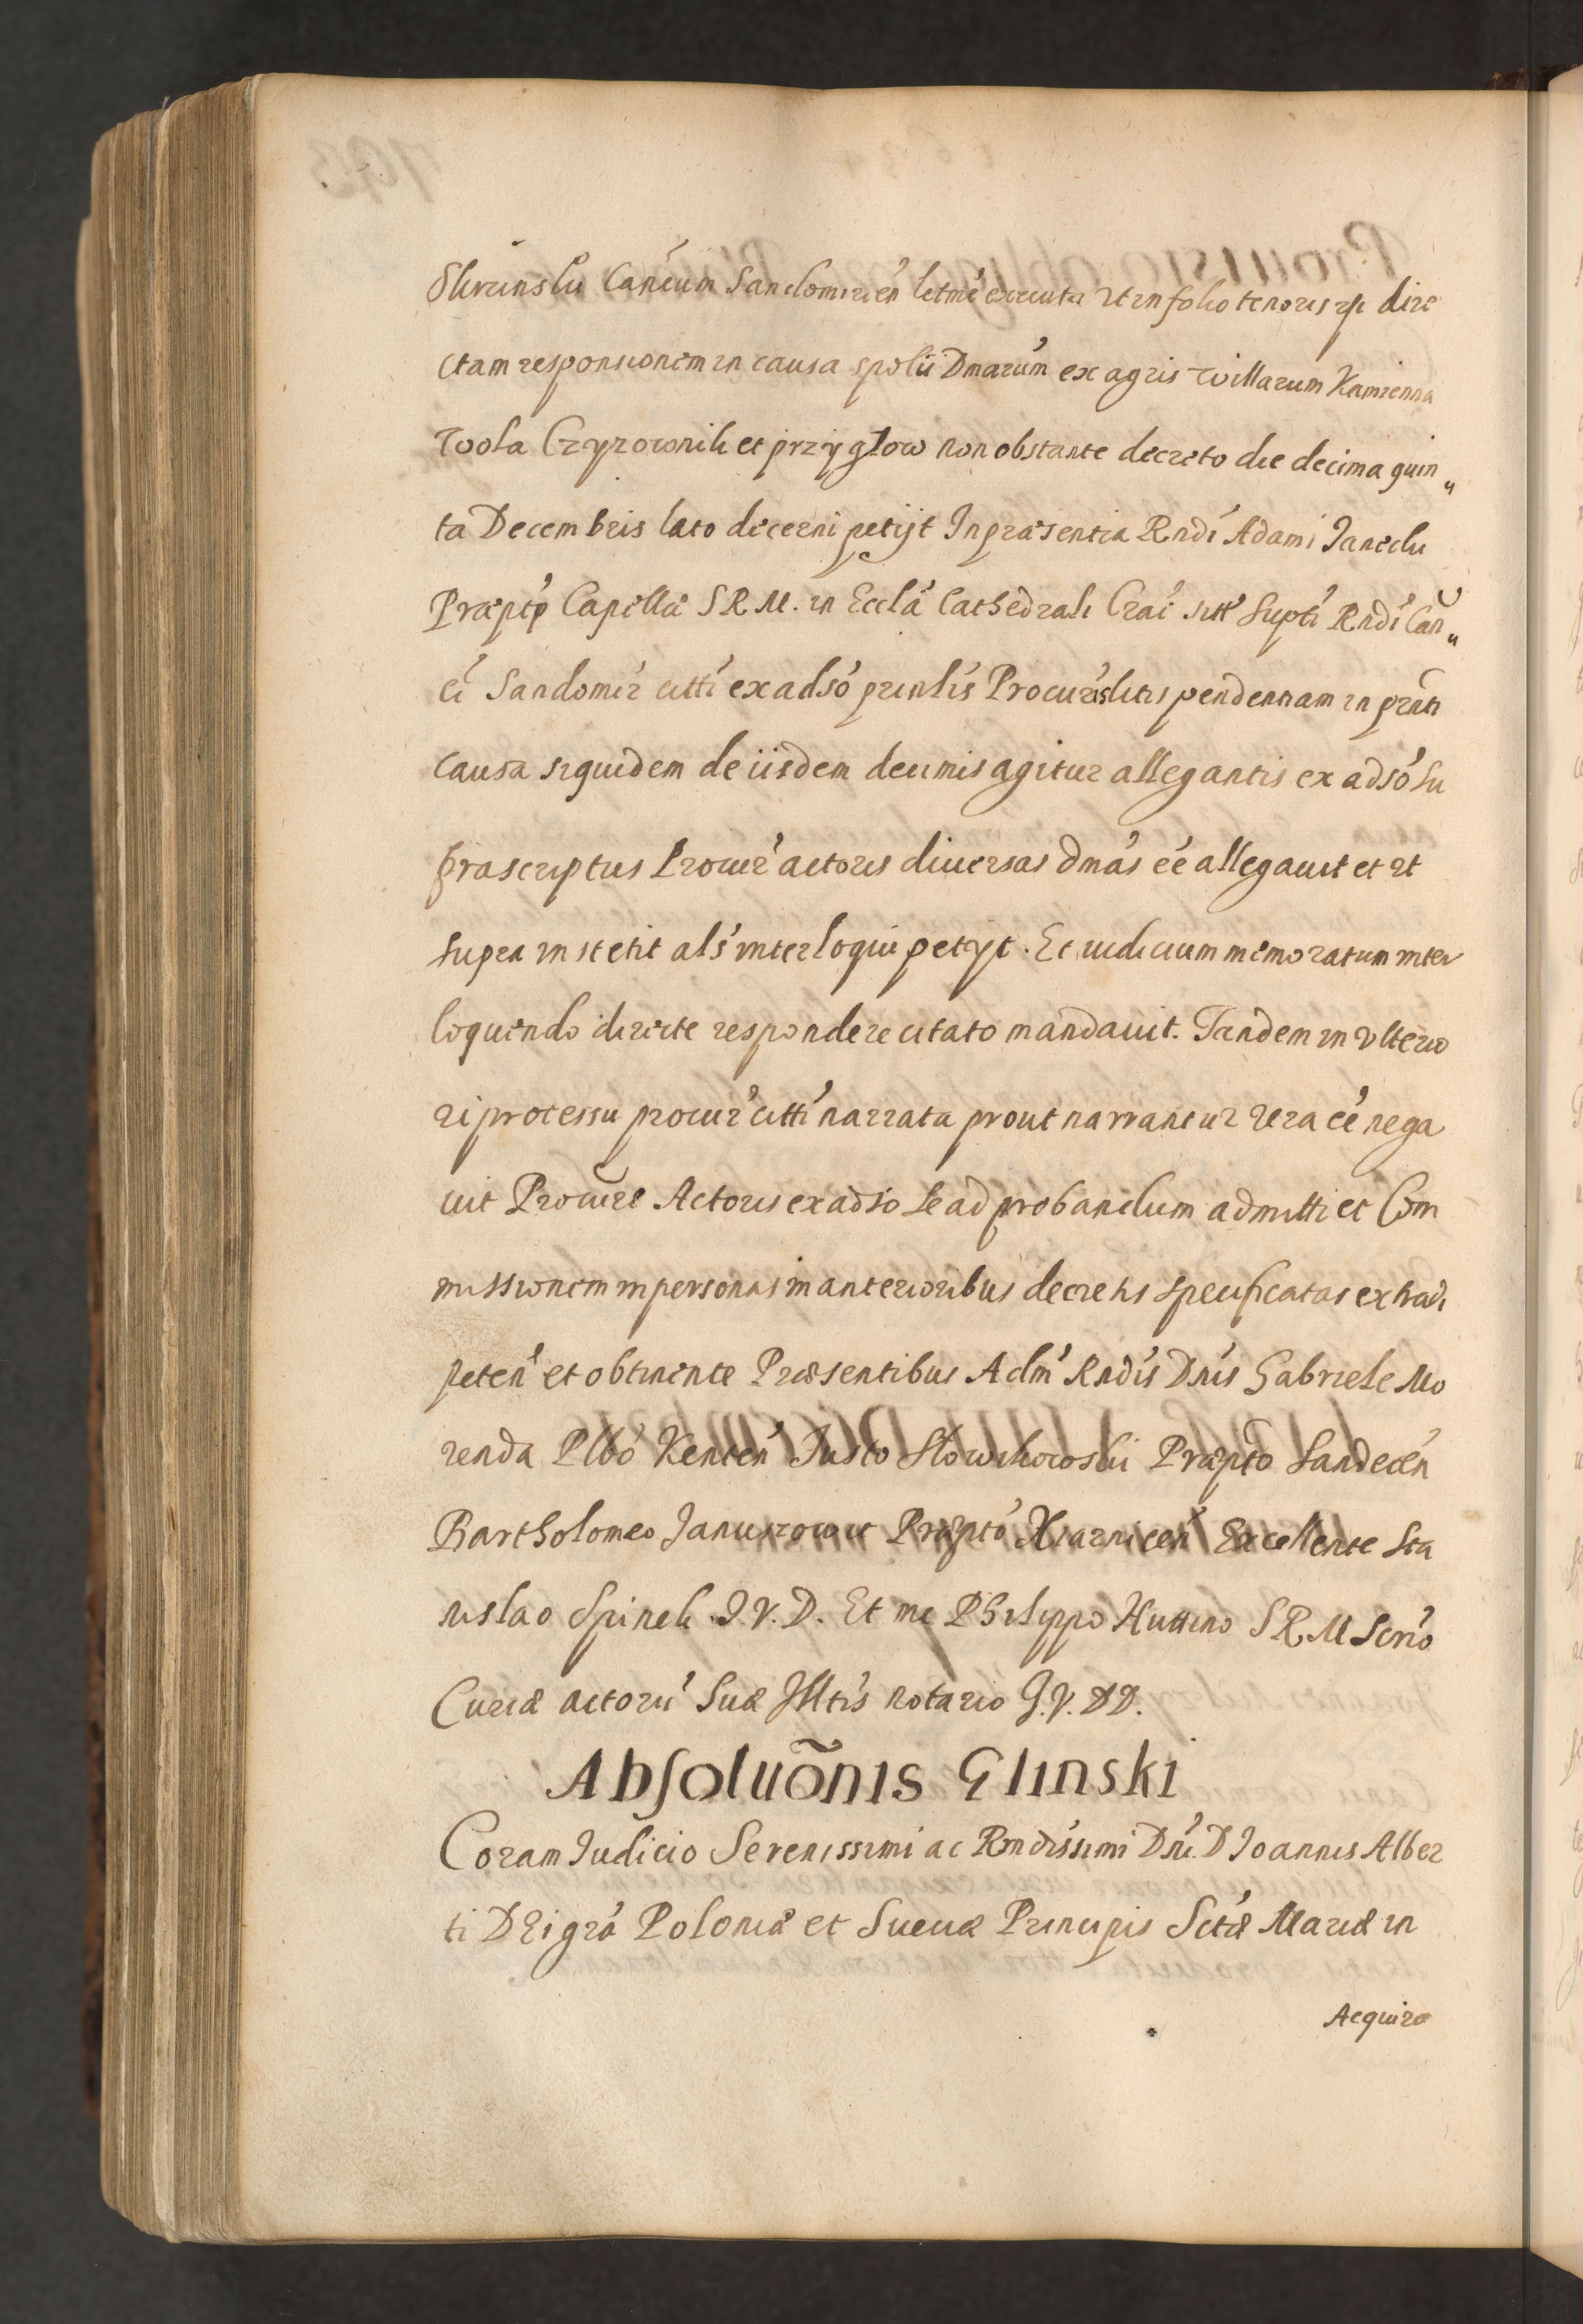 Skrunski Canćum Sandomirień letmé executa ut in folio tenoris sp dire
ctam responsionem in causa spolii Dmarum ex agris villarum Kamienna
Wola Czyzownik et przygłow non obstante decreto die decima quin„
ta Decembris lato decerni petijt In præsentia Rndi Adami Janecki
Præpti Capellæ S R M. in Eccla Cathedrali Crai Supti Rndi Can„
ci Sandomir citti ex adso prinlis Procuris litis pendentiam in prnti
causa siquidem de iisdem decimis agitur allegantis ex adso su
prascriptus Procur actoris diuersas dmas eé allegauit et ut
supra institit als interloqui petijt. Et iudicium memoratum inter
loquendo directe respondere citato mandauit. Tandem in vlterio
ri processu procur citti narrata prout narrantur uera eé nega
uit Procure Actoris ex adso se ad probandum admitti et Com
missionem in personas in anterioribus decretis specificatas extradi
peteń et obtinente Præsentibus Adm Rndis Dnis Gabriele Mo
renda Plbo Kenteń Justo Słowikowski Præpto Sandeceń
Bartholomeo Januszowic Præpto Xiarniceń Excellente Sta
nislao Spinek J. V. D. Et me Philippo Huttino S R M Scrio
Curiæ actorú Suæ Illtis notario J. V. DD.
Absoluõnis Glinski
Coram Judicio Serenissimi ac Rmdissimi Dni. D Joannis Alber
ti DEi gra Poloniæ et Sueciæ Principis Sctæ Mariæ in
Acquiro